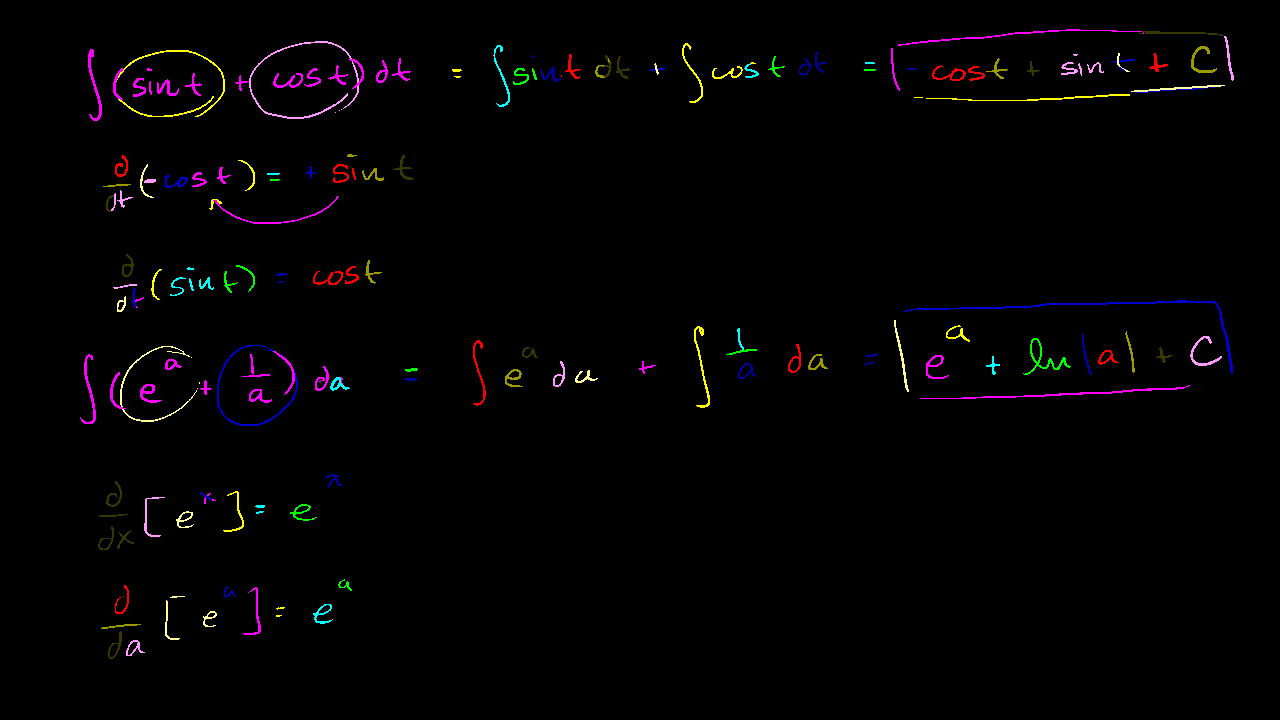 ∫(sin t + cos t) dt = ∫sin t dt + ∫cos t dt = - cos t + sin t + C
d/dt (- cos t) = + sin t
d/dt (sin t) = cos t
∫(e^a + 1/a) da = ∫ e^a da + ∫ 1/a da = e^a + ln |a| + C
d/dx [e^x] = e^x
d/da [e^a] = e^a